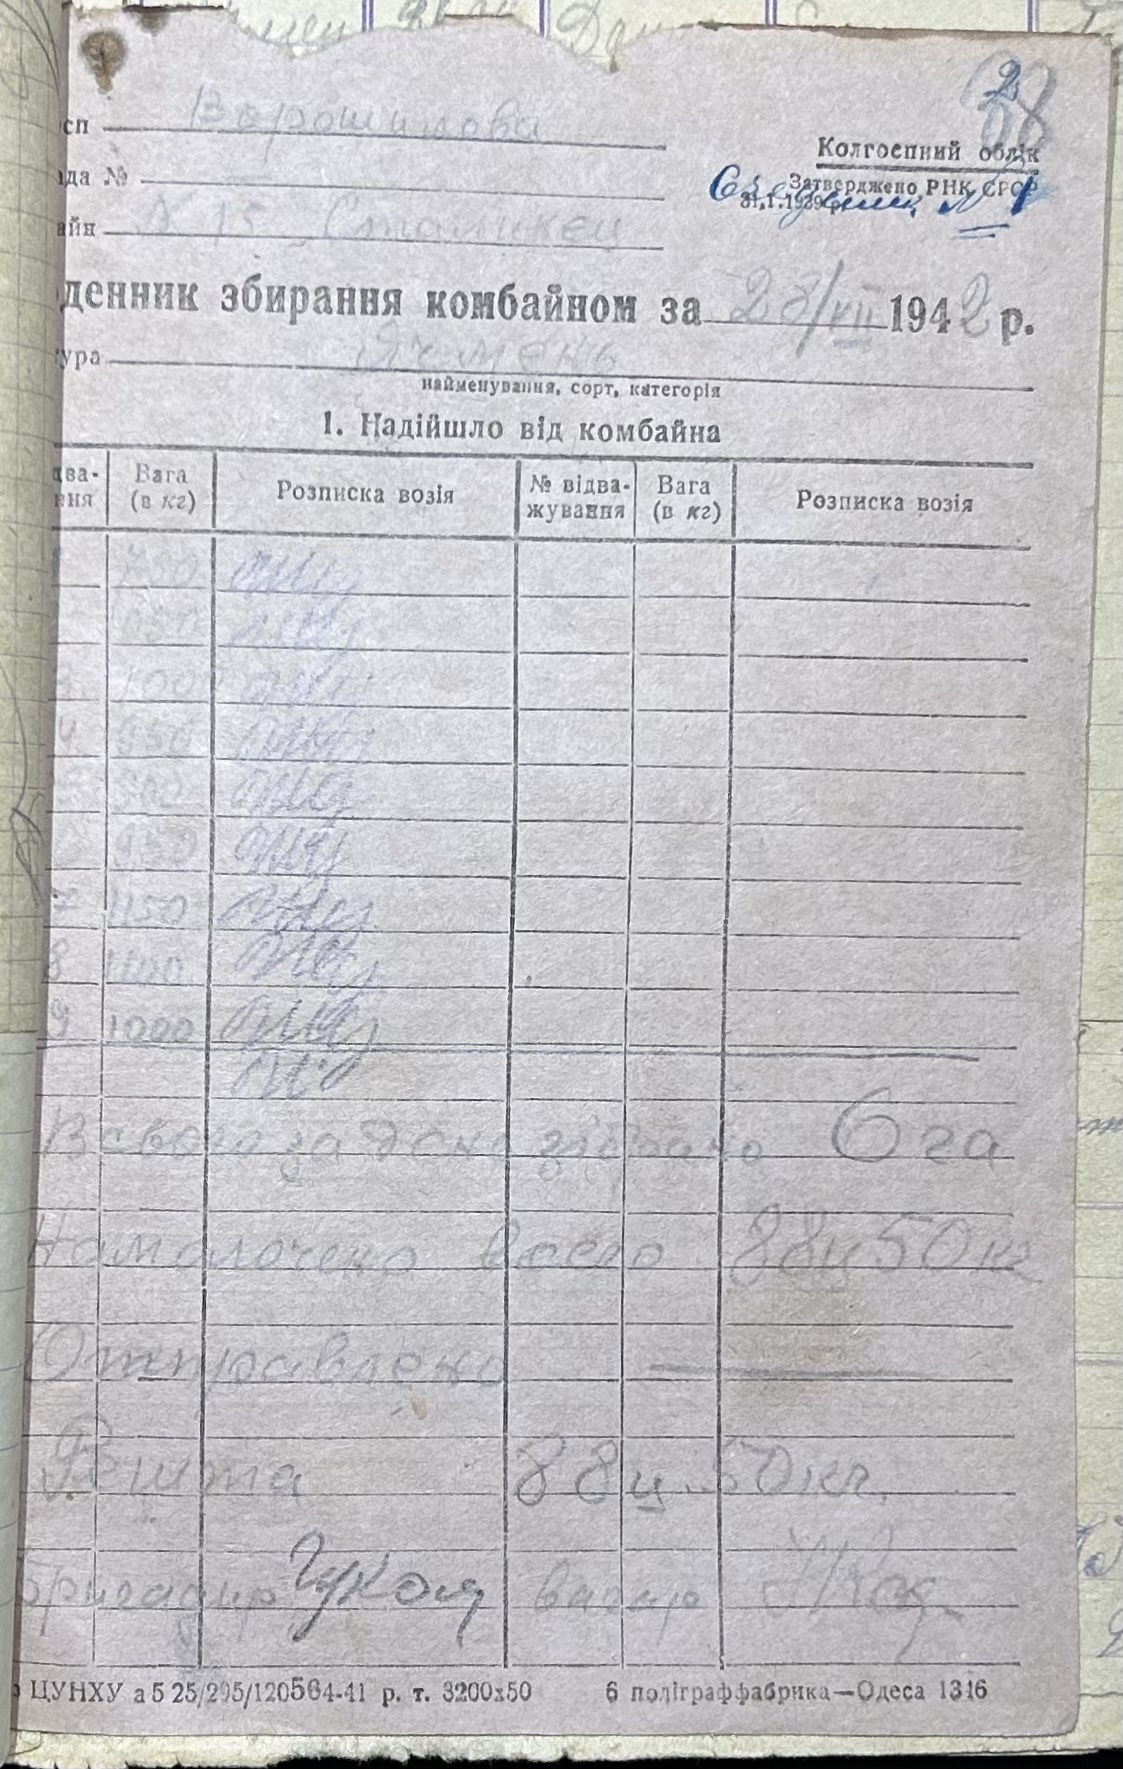 2
88
сп Ворошилова
Колгоспний облік
ада №
Затверджено РНК СРСР
31.I.1939 р.
Сведение №1
айн Сталинец
денник збирання комбайном за 28/VII 1942 р.
ура Ячмень
найменування, сорт, категорія
1. Надійшло від комбайна
два- Вага Розписка возія № відва- Вага Розписка возія
ння (в кг) жування (в кг)
3 1000
4 950
950
7 1150
8 1100
9 1000
Всього за день зібрано 6 га
Намолочено всего 88ц 50 кг
Отправлено —
Решта 88ц 50 кг.
Бригадир вагар
ЦУНХУ а 5 25/295/120564-41 р. т. 3200х50 6 поліграффабрика—Одеса 1316